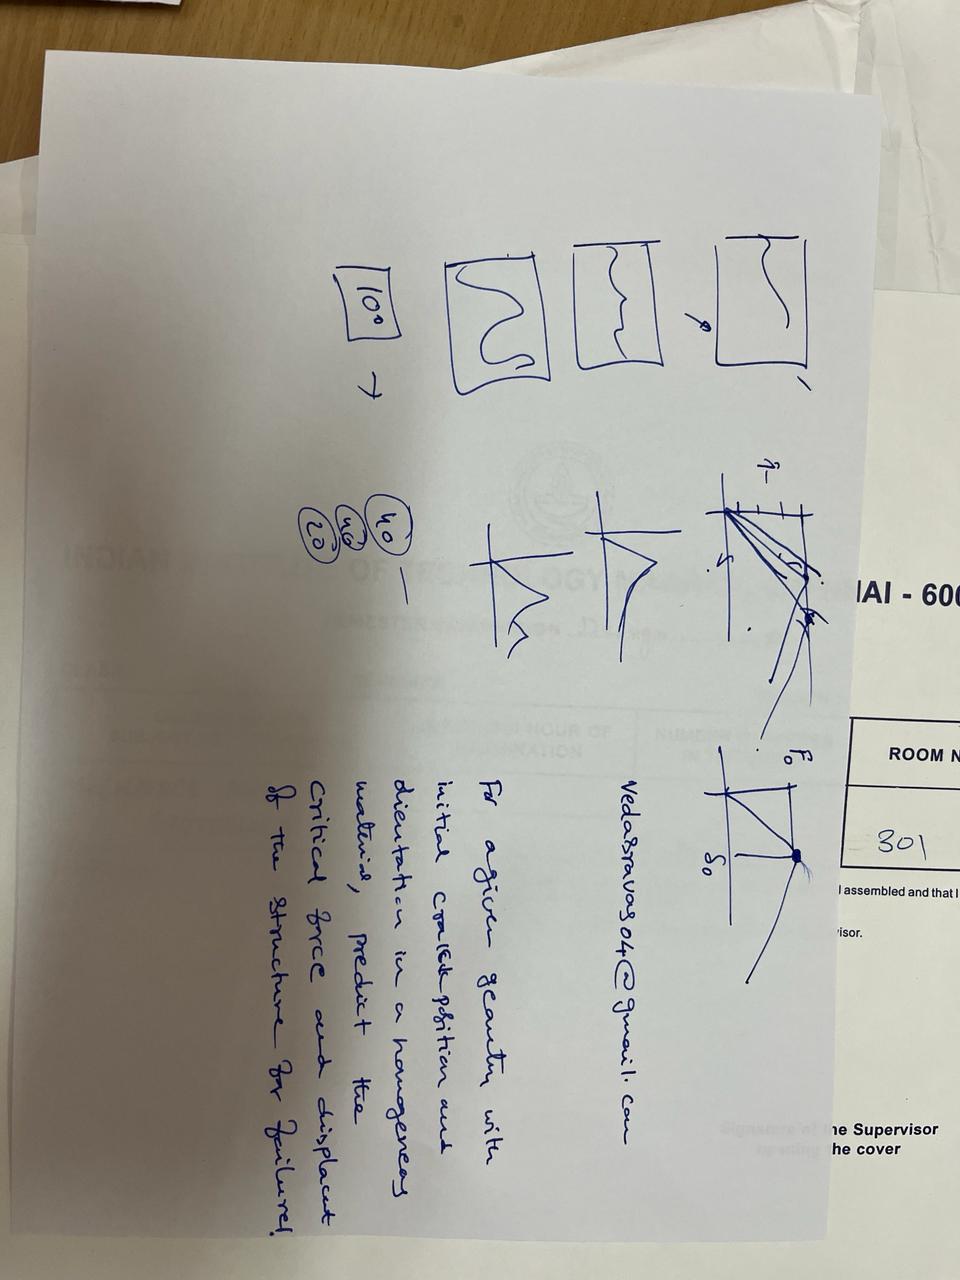 IAI - 600
ROOM N
301
assembled and that I
isor.
he Supervisor
he cover
F₀
δ₀
vedasravas04@gmail.com
For a given geometry with
initial crack position and
orientation in a homogeneous
material, predict the
critical force and displacent
of the structure for failure.
10⁰ →
40
40
20